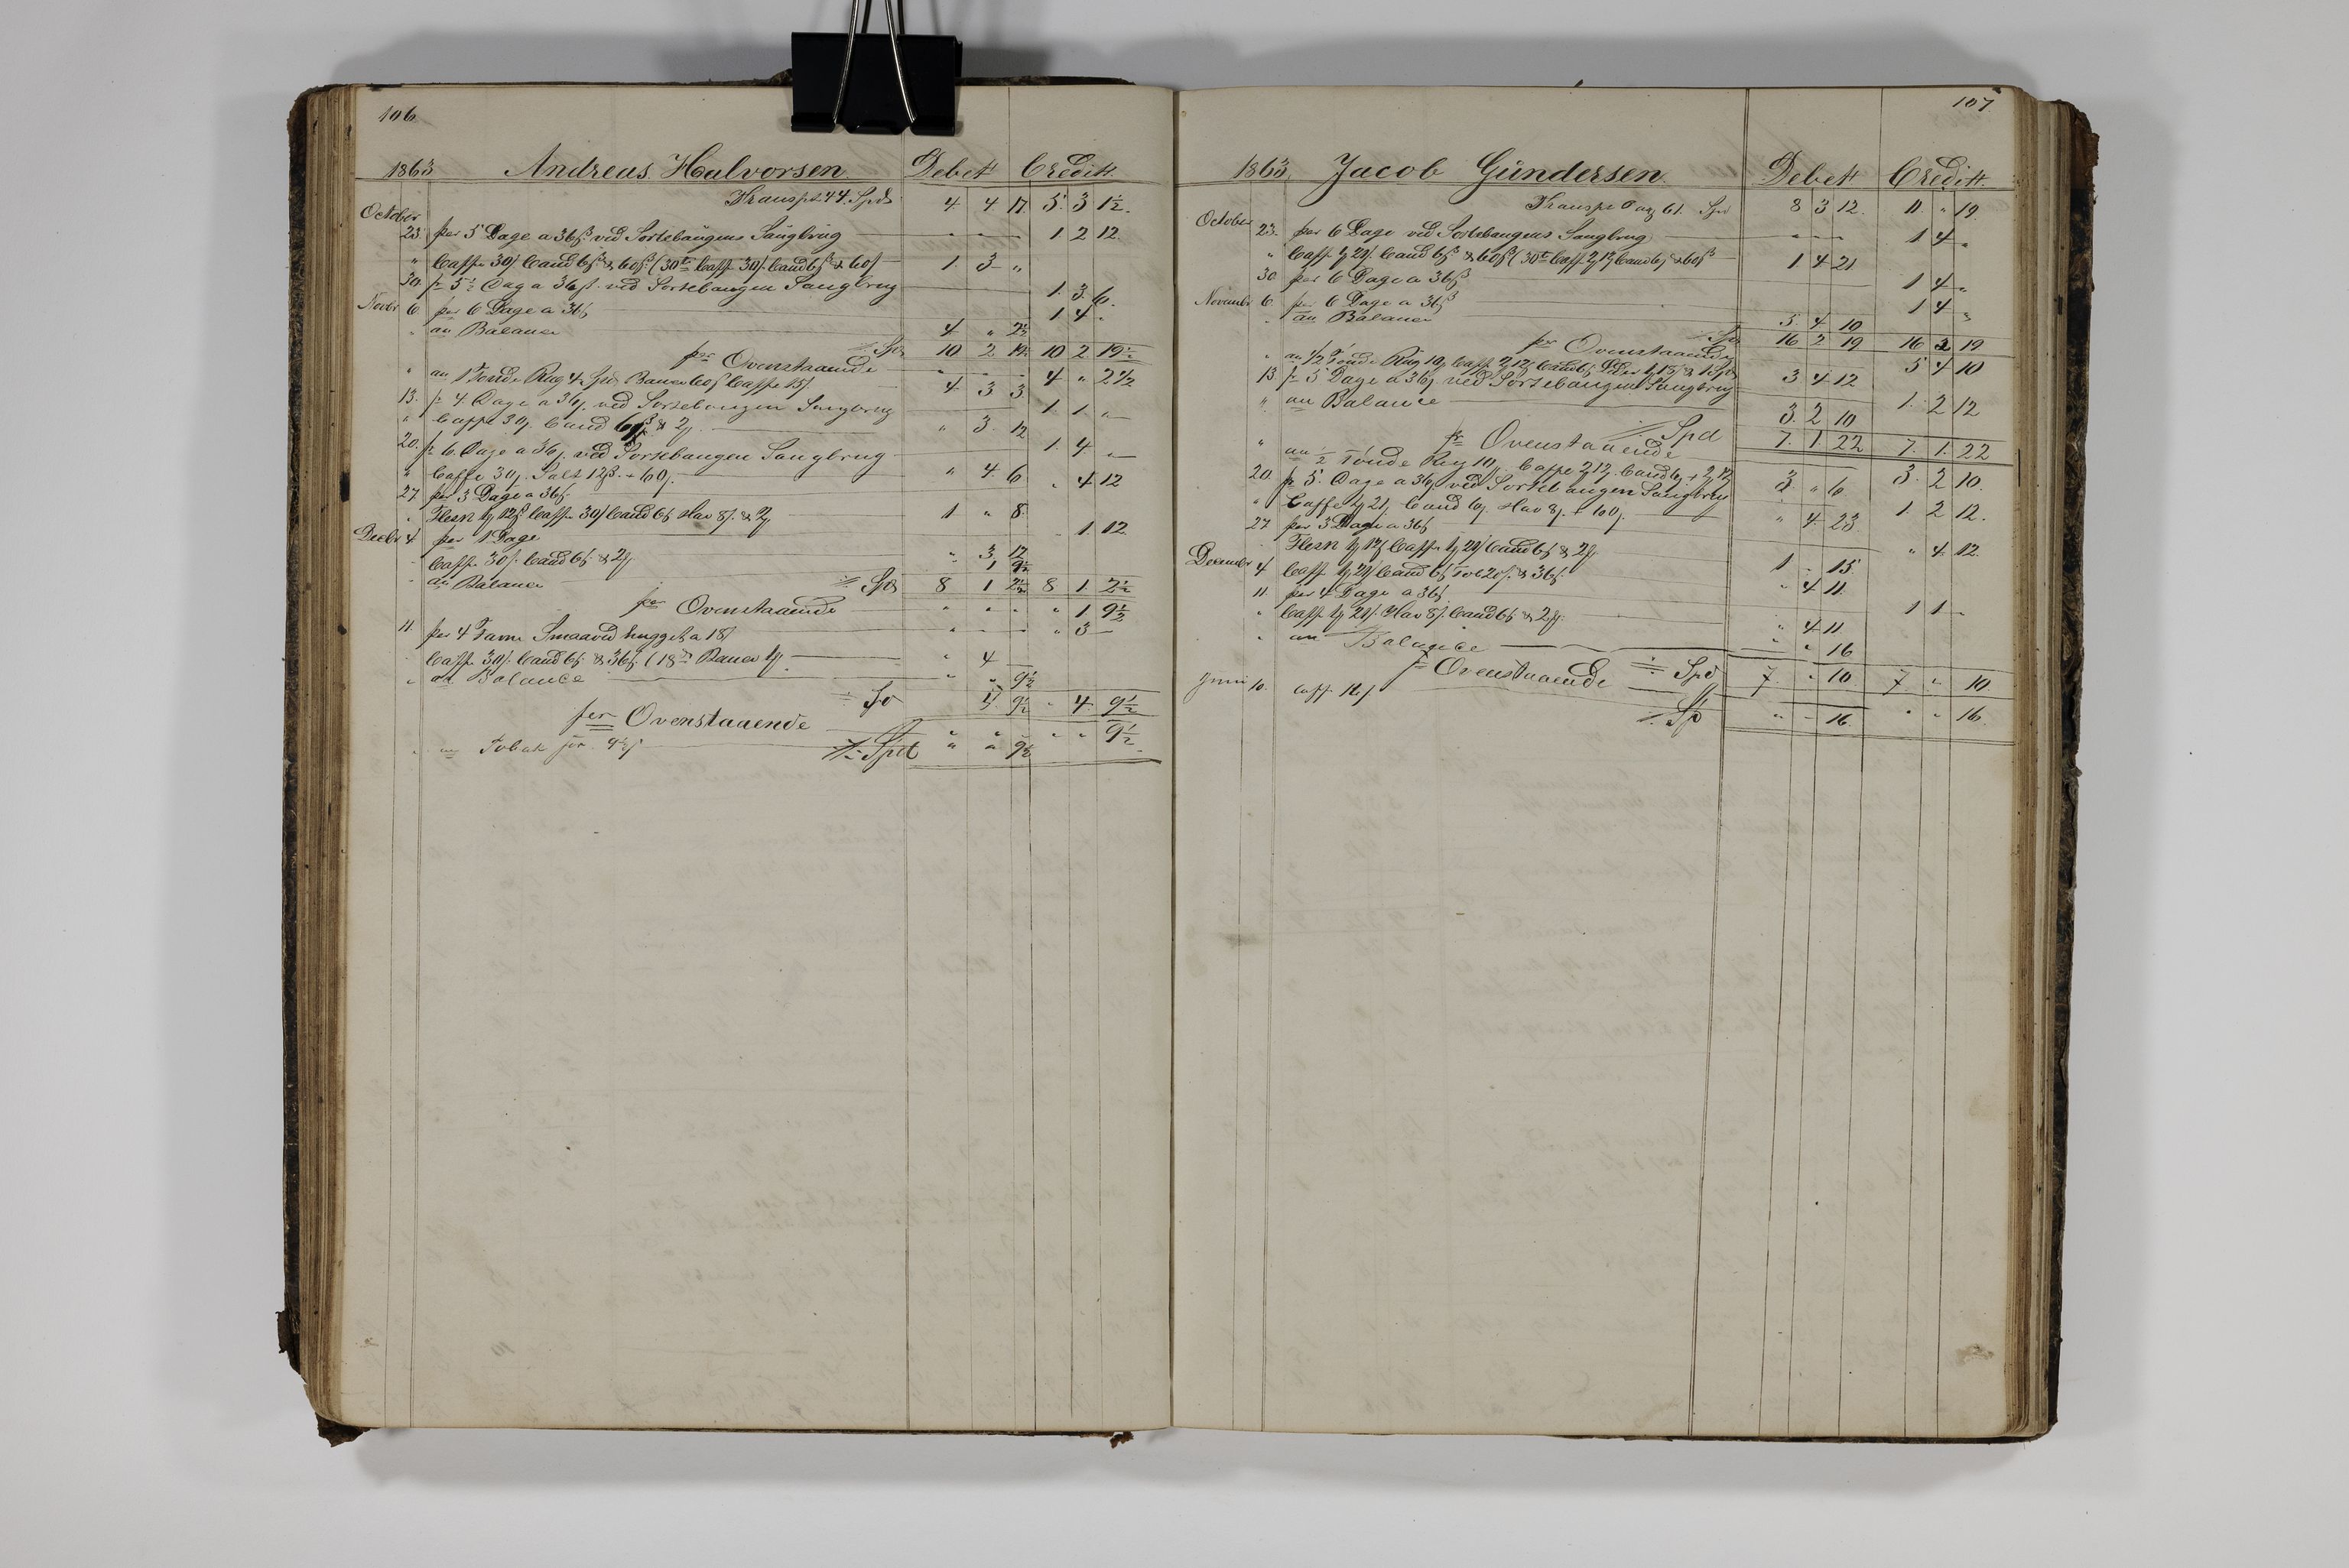 106
1863 Andreas Halvorsen. Debet Credit.
Transpt 44. Spd 4. 4 17. 5. 3 1½.
October
23. per 5 Dage a 36ß ved Sortebaugens Saugbrug 1. 2 12.
" Caffe 30ß Cand 6ß & 60ß (30te Caffe 30ß Cand 6ß & 60ß 1. 3 "
30. pr 5½ Dag a 36ß. ved Sortebaugen Saugbrug 1. 3. 6.
Novbr 6 per 6 Dage a 36ß 1 4 "
" an Balance 4 " 2½
Spd 10 2 19½ 10 2 19½
per Ovenstaaende 4 " 2½
" an 1 Tønde Rug 4 Spd 60ß Caffe 15ß 4. 3 3
13. pr 4 Dage a 36ß. ved Sortebaugen Saugbrug 1. 1 "
" Caffe 30ß. Cand 6ß & 2ß. " 3. 12
20. pr 6 Dage a 36ß. ved Sortebaugen Saugbrug 1. 4 "
" Caffe 30ß. Salt 12ß. + 60ß. " 4. 6
27. per 3 Dage a 36ß. " 4 12
" Flesk 12ß Caffe 30ß Cand 6ß Hav 8ß. & 1 " 8.
Decbr 4 per 1 Dage 1. 12.
Caffe 30ß. Cand 6ß. & " 3. 12
an Balance 1 9½
Spd 8 1 2½ 8 1. 2½
per Ovenstaaende " 1 9½
11. per 4 Favne Smaaved hugget a 18ß " 3 —
Caffe 30ß. Cand 6ß. & 36ß. " 4 —
" an Balance " " 9½
Sp 4 9½ " 4. 9½
per Ovenstaaende " " 9½
" an Tobak 9½ß Spd " " 9½
107
1863. Jacob Gündersen. Debet Credit.
Transpt Pag 61. Spd 8 3 12. 11. " 19.
October 23. per 6 Dage ved Sortebaugens Saugbrug 1 4 "
" Caffe 21ß Cand 6ß & 60ß (30te Caffe Cand 6ß & 60ß 1. 4 21
30 per 6 Dage a 36ß 1 4 "
Novembr 6 per 6 Dage a 36ß 1 4 "
" an Balance 5. 4 10
Spd 16 2 19 16 2 19
per Ovenstaaende 5 4 10
" an 1/2 Tønde Rug Caffe Cand 6ß & 1 Spd 3 4 12
13 pr 5 Dage a 36ß ved Sortebaugen Saugbrug 1. 2 12
" an Balance 3. 2 10
Spd 7. 1. 22 7. 1. 22
pr Ovenstaaende 3. 2 10.
" an ½ Tønde Rug Caffe Cand 6ß + 3 " 6
20. pr 5. Dage a 36ß ved Sortebaugen Saugbrug 1. 2 12.
" Caffe 21ß Cand 6ß. Hav 8ß. + 60ß. " 4. 23.
27 per 3 Dage a 36ß " 4. 12.
Flesk 12ß Caffe 21ß Cand 6ß & 1 " 15.
December 4 Caffe 21ß Cand 6ß Tob 20ß. & 36ß. " 4 11
11. per 4 Dage a 36ß. 1 1 "
" Caffe 21ß. Hav 8ß. Cand 6ß & " 4 11
" an Balance " " 16
Spd 7. " 10. 7 " 10
pr Ovenstaaende " " 16.
Juni 10. Caff. 16ß Sp " " 16.